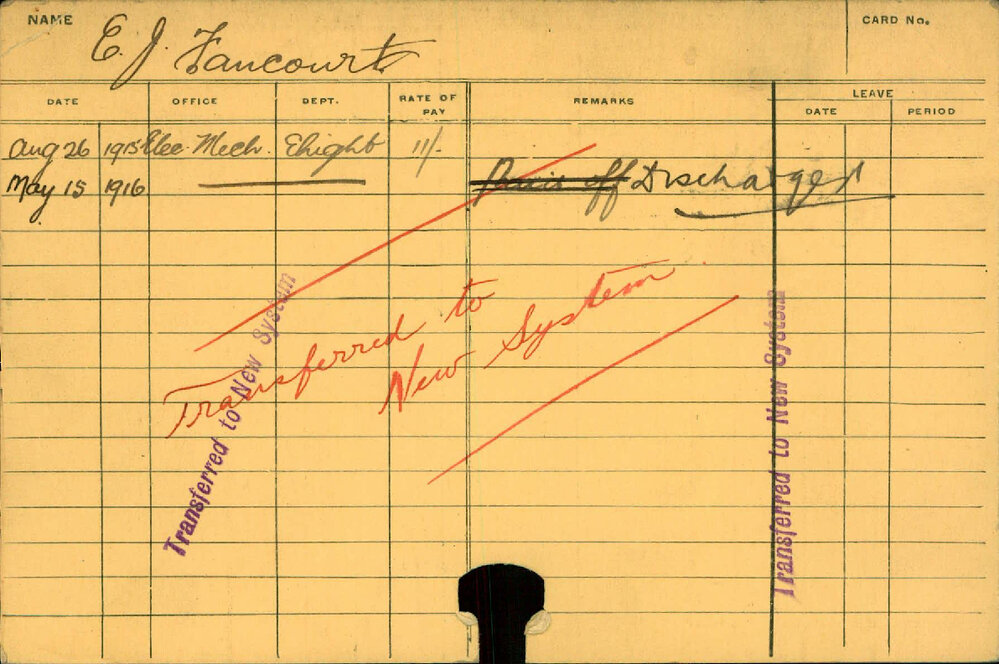 NAME E. J. Fancourt CARD No.
DATE OFFICE DEPT. RATE OF PAY REMARKS LEAVE
DATE PERIOD
Aug 26 1915 Elec. Mech. Ehight 11/-
May 15 1916 Discharged
Transferred to
New System
Transferred to New System
Transferred to New System